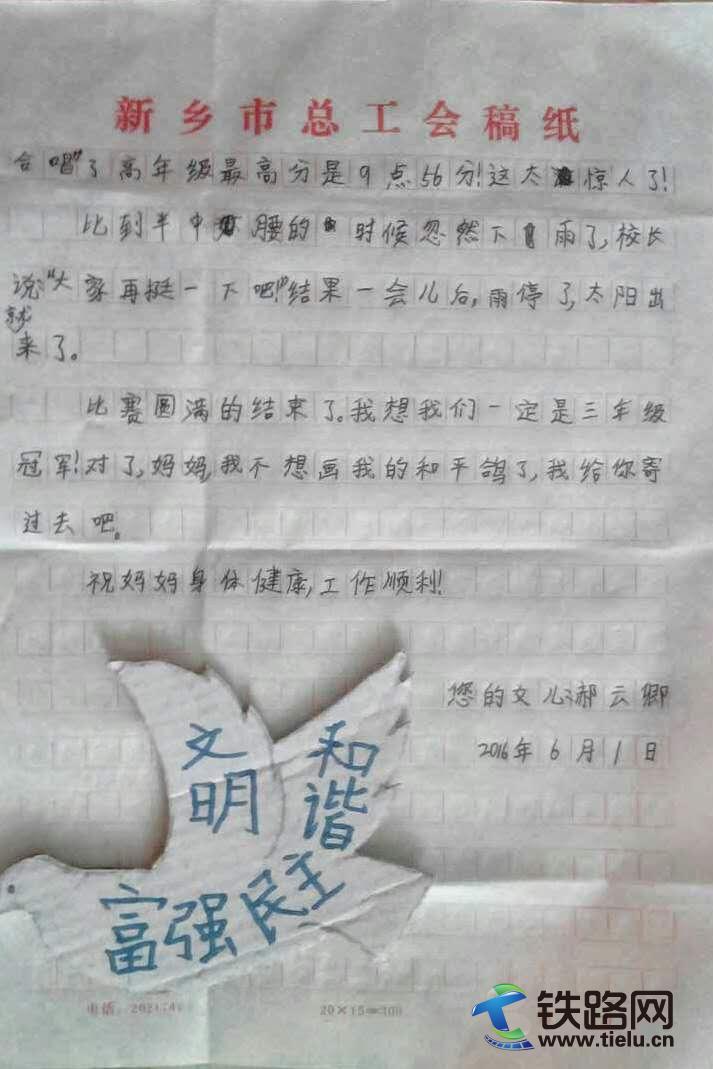 新乡市总工会稿纸
合唱"了高年级最高分是9点56分!这太惊人了!
比到半中腰的时候忽然下雨了,校长
说:"大家再挺一下吧!"结果一会儿后,雨停了,太阳出
就
来了。
比赛圆满的结束了。我想我们一定是三年级
冠军!对了,妈妈,我不想画我的和平鸽了,我给你寄
过去吧。
祝妈妈身体健康,工作顺利!
您的女儿:郝云卿
2016年6月1日
文明
和谐
富强民主
电话:
20×15=300
铁路网
www.tielu.cn